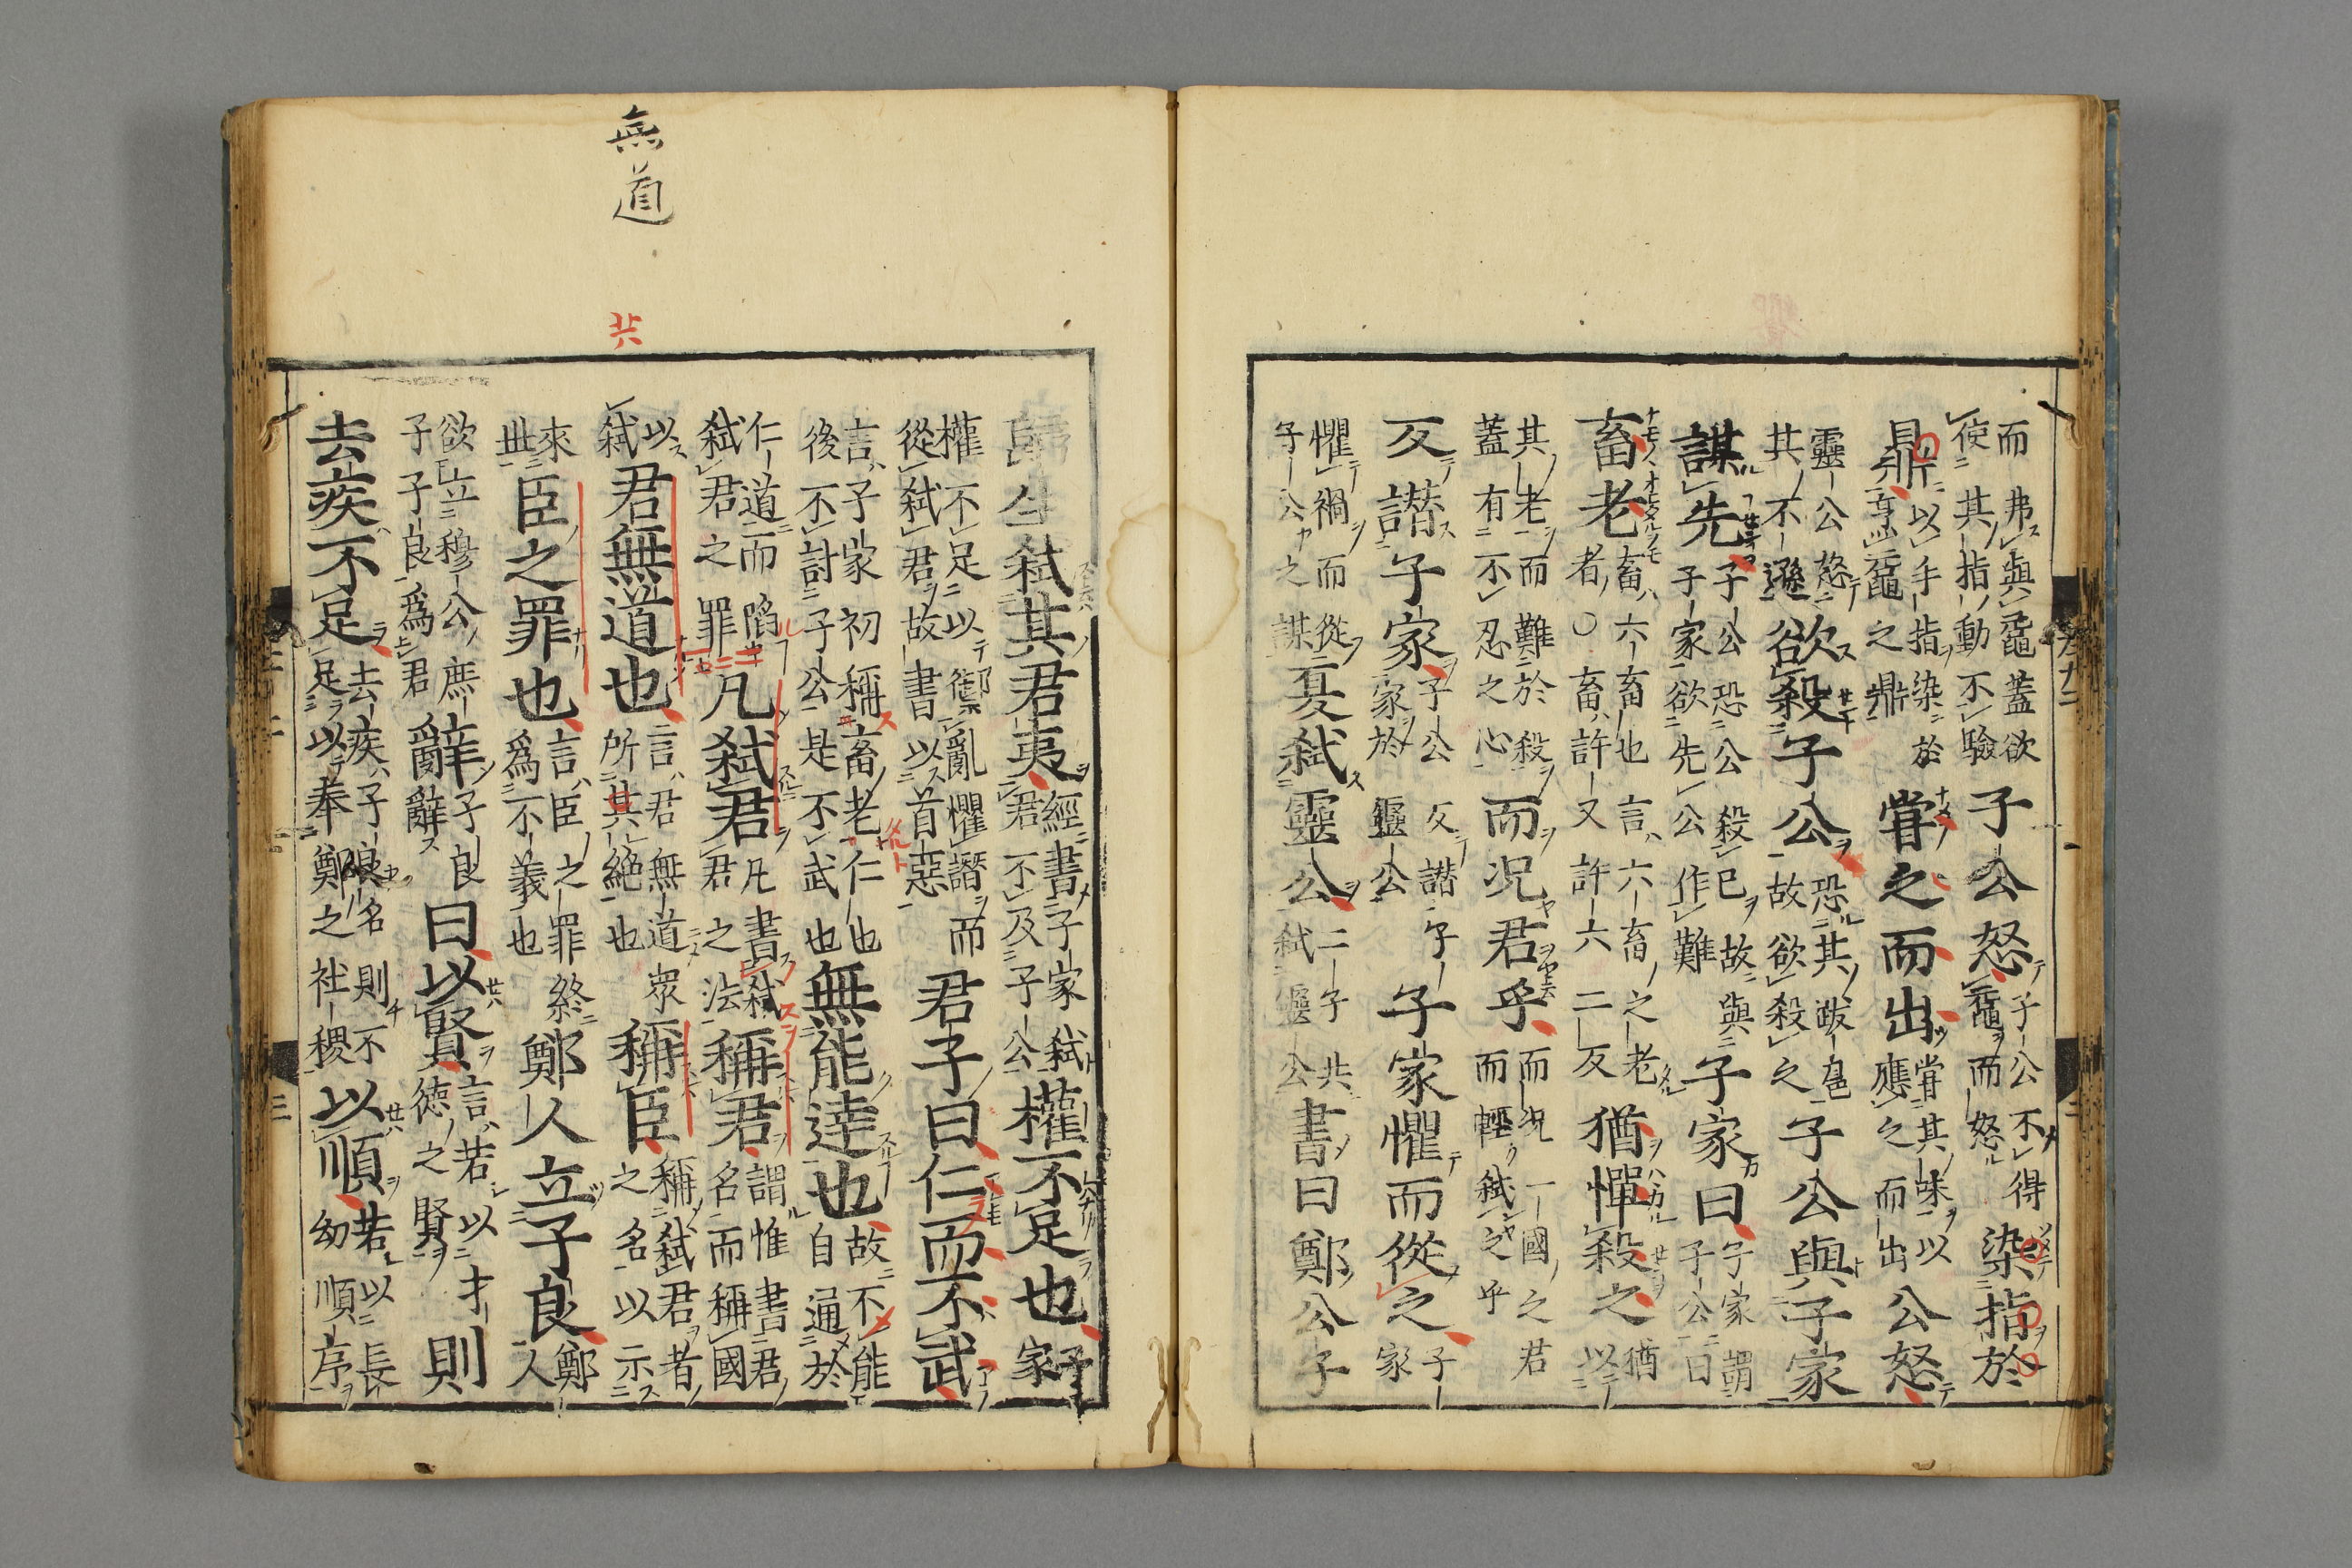 而弗與黿蓋欲使其指動不驗子公怒子公不得黿而怒染指於
鼎以手指染於烹黿之鼎嘗之而出嘗其味以應之而出公怒
靈公怒其不遜欲殺子公恐其跋扈故欲殺之子公與子家
謀先子公恐公殺已故與子家欲先公作難子家曰子家謂子公曰
畜老畜六畜也言六畜之老者○畜許又許六二反猶憚殺之猶以
其老而難於殺蓋有不忍之心而況君乎而況一國之君而輕弒之乎
反譖子家子公反譖子家於靈公子家懼而從之子家
懼禍而從子公之謀夏弒靈公二子共弒靈公書曰鄭公子
歸生弒其君夷經書子家弒君不及子公權不足也子家
權不足以禦亂懼譖而從弒君故書以首惡君子曰仁而不武
言子家初稱畜老仁也後不討子公是不武也無能達也故不能自通於
仁道而陷弒君之罪凡弒君凡書弒君之法稱君謂惟書君名而稱國
以弒君無道也言君無道眾所共絕也稱臣稱弒君者之名以示
來世臣之罪也言臣之罪終為不義也鄭人立子良鄭人
欲立穆公庶子子良為君辭子良辭曰以賢言若以才德之賢則
去疾不足去疾子良名則不足以奉鄭之社稷以順若以長幼順序
無道